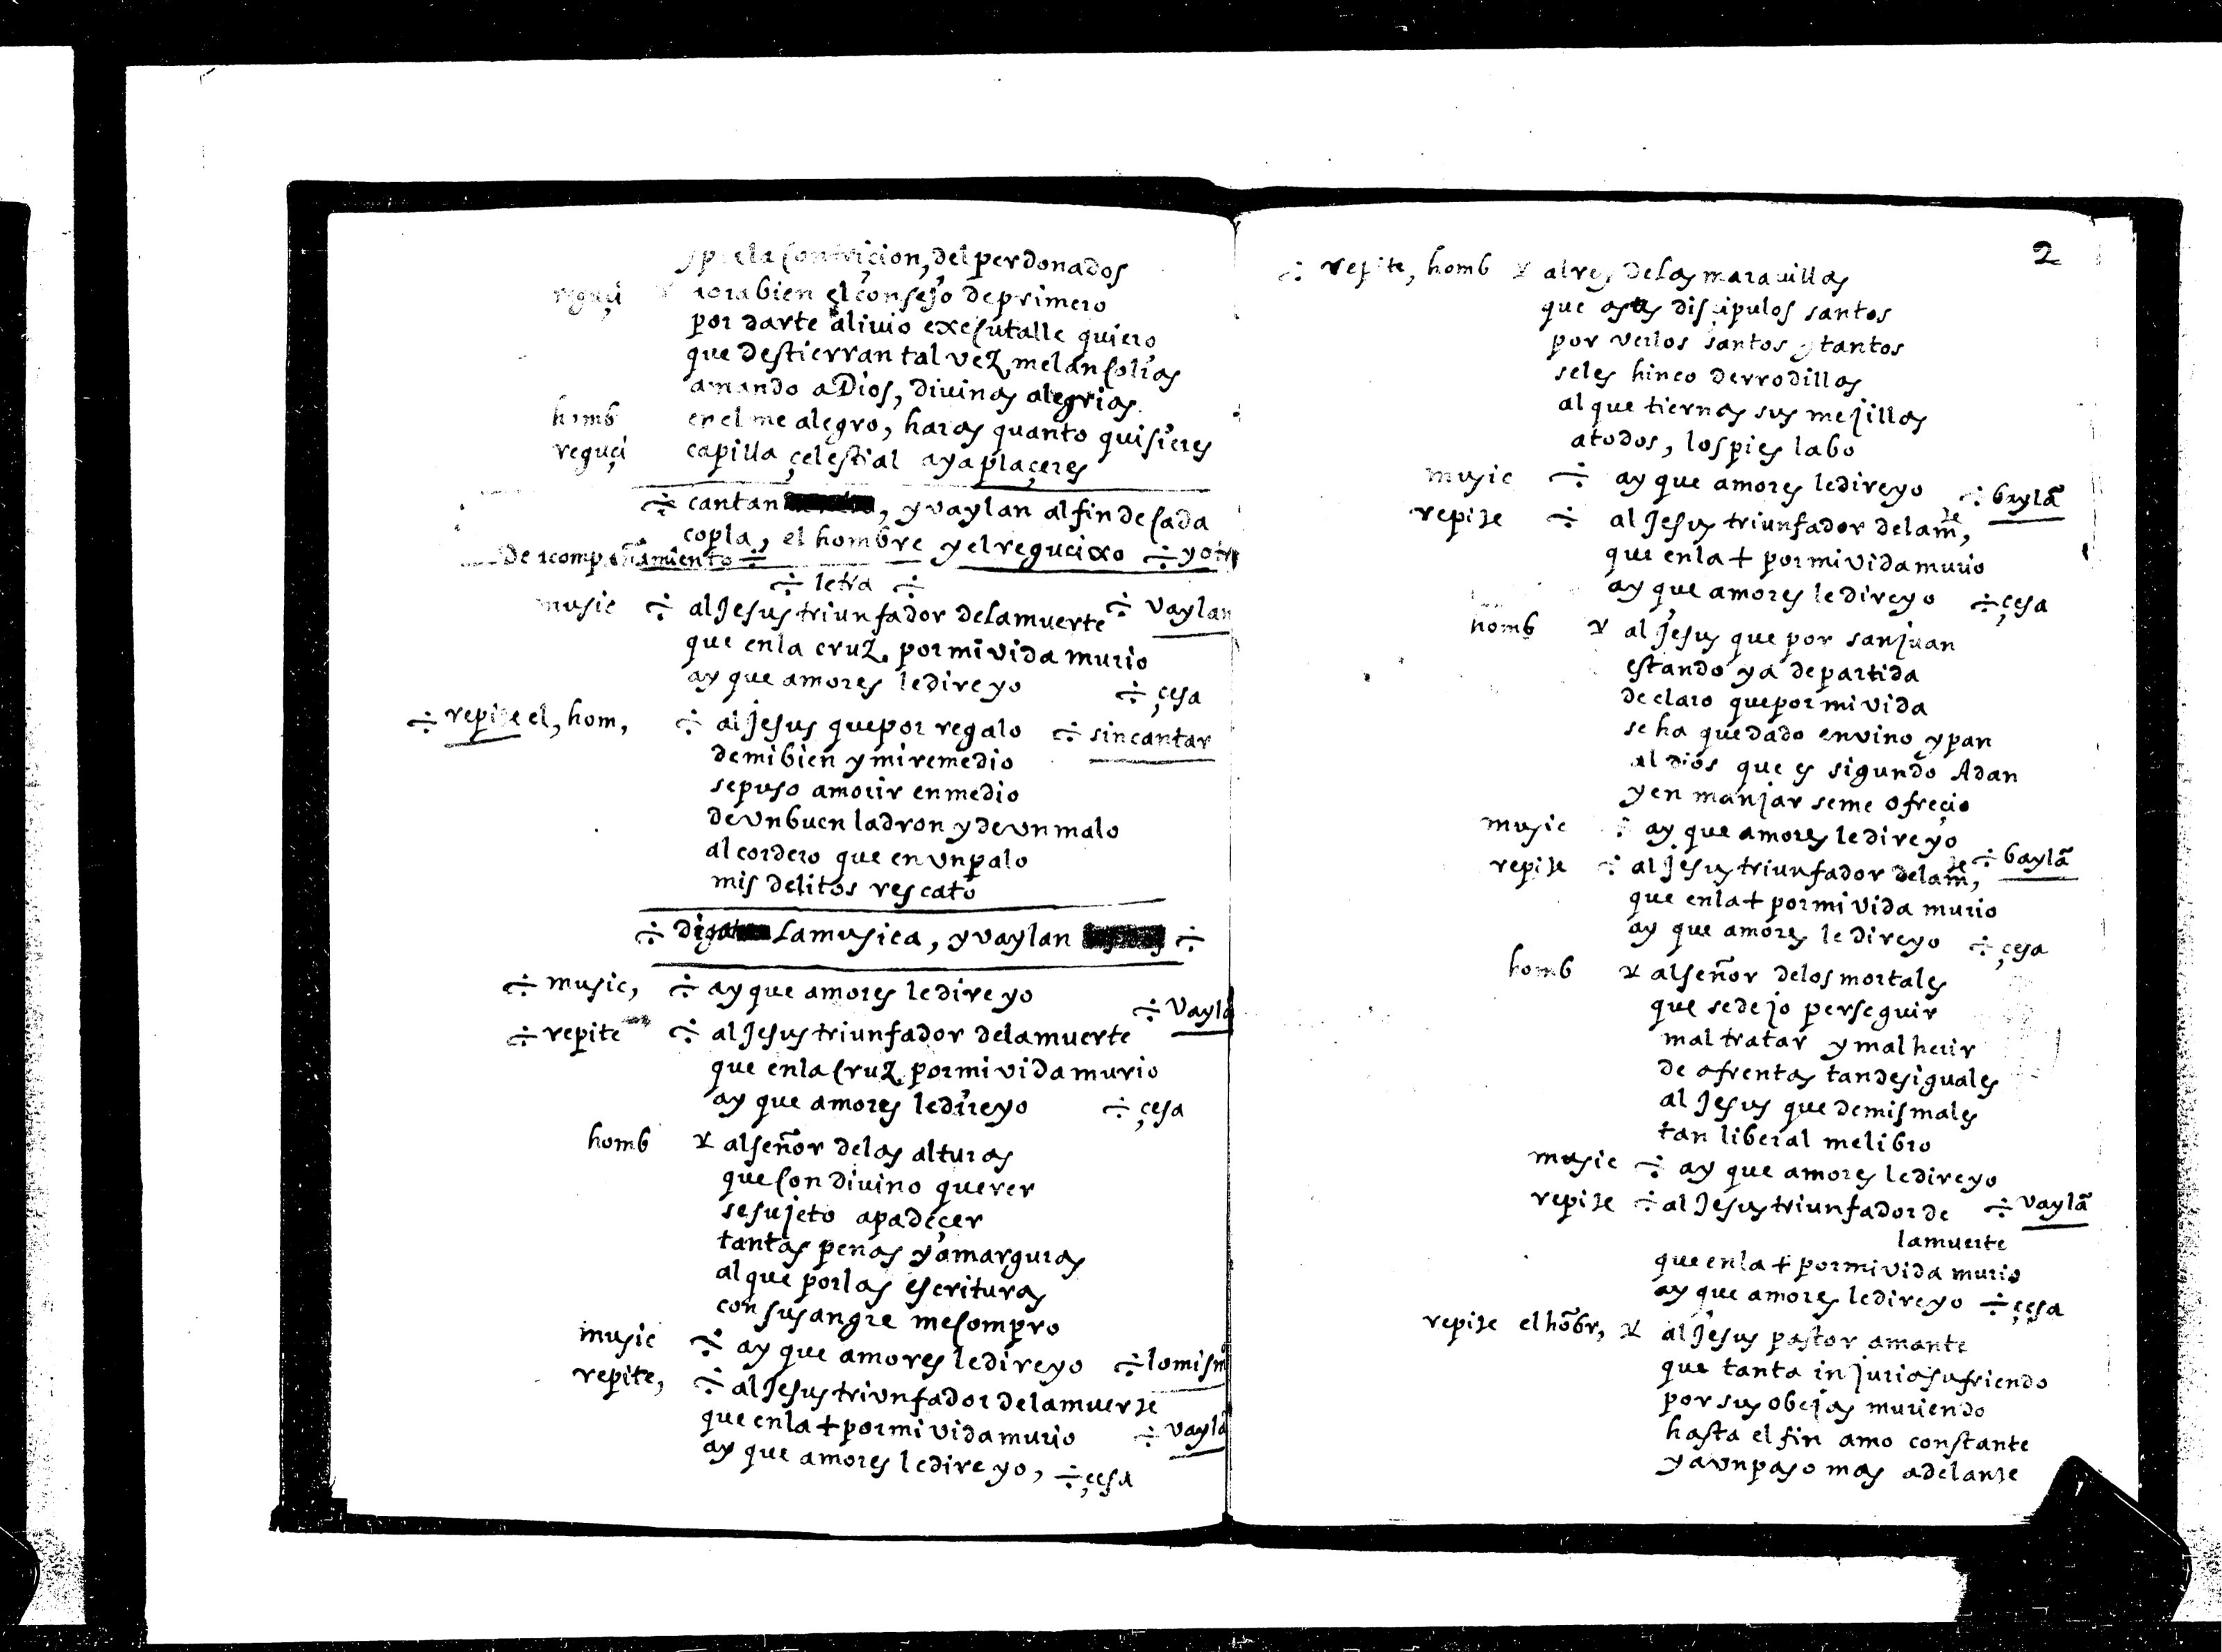 la contriçion, del perdonados
reguçi aora bien el consejo de primero
por darte aliuio executalle quiero
que destierran tal vez, melancolias
amando a Dios, diuinas alegrias
homb en el me alegro, haras quanto quisieres
reguçi capilla çelestial aya plaçeres
÷ cantan, y vaylan al fin de cada
copla, el hombre y el regucixo ÷ y otr
De acompañamiento ÷
÷ letra ÷
music ÷ al Jesus triunfador de la muerte ÷ vaylan
que en la cruz, por mi vida murio
ay que amores le dire yo ÷ çesa
÷ repite el, hom, ÷ al jesus que por regalo ÷ sin cantar
de mi bien y mi remedio
se puso a morir en medio
de vn buen ladron y de vn malo
al cordero que en vn palo
mis delitos rescato
÷ diga la musica, y vaylan ÷
÷ music, ÷ ay que amores le dire yo ÷ vaylã
÷ repite ÷ al Jesus triunfador de la muerte
que en la cruz, por mi vida murio
ay que amores le dire yo ÷ çesa
homb al señor de las alturas
que con diuino querer
se sujeto a padeçer
tantas penas y amarguras
al que por las escrituras
con su sangre me compro
music ÷ ay que amores le dire yo ÷ lo mism
repite, ÷ al Jesus triunfador de la muerte
que en la + por mi vida murio ÷ vaylã
ay que amores le dire yo, ÷ çesa
2
÷ repite, homb al rey de las marauillas
que a sus disçipulos santos
por verlos santos y tantos
se les hinco de rrodillas
al que tiernas sus mejillas
a todos, los pies labo
music ÷ ay que amores le dire yo ÷ baylã
repite ÷ al Jesus triunfador de la m̃te,
que en la + por mi vida murio
ay que amores le dire yo ÷ çesa
homb al Jesus que por san juan
estando ya de partida
declaro que por mi vida
se ha quedado en vino y pan
al dios que es sigundo Adan
y en manjar se me ofreçio
music ÷ ay que amores le dire yo
repite ÷ al jesus triunfador de la m̃te, ÷ baylã
que en la + por mi vida murio
ay que amores le dire yo ÷ çesa
homb al señor de los mortales
que se dejo perseguir
mal tratar y mal herir
de afrentas tan desiguales
al Jesus que de mis males
tan liberal me libro
music ÷ ay que amores le dire yo
repite ÷ al Jesus triunfador de ÷ vaylã
la muerte
que en la + por mi vida murio
ay que amores le dire yo ÷ çesa
repite el hõbr, al Jesus pastor amante
que tanta injuria sufriendo
por sus obejas muriendo
hasta el fin amo constante
y a vn paso mas adelante